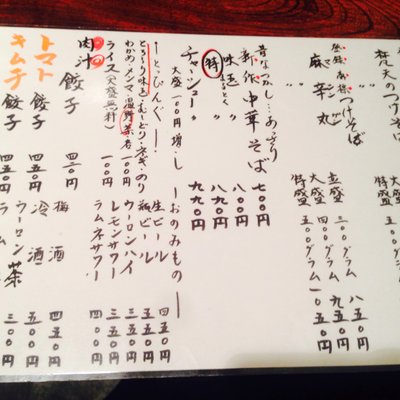 梵天のつけそば
元祖・南極つけそば
麻辛丸 〃
大盛
特盛
並盛 三〇〇グラム 八五〇円
大盛 四〇〇グラム 九五〇円
特盛 五〇〇グラム 一〇五〇円
昔なつかし…あっさり
新作中華そば 七〇〇円
味玉 〃 八〇〇円
特 〃 九八〇円
チャーシュー 〃 九九〇円
大盛一〇〇円増し
ーとっぴんぐー
とろ〜り味玉・むーどり・ネギ・のり
わかめ・メンマ・温野菜・各一〇〇円
ライス(大盛無料) 一〇〇円
肉汁餃子 四一〇円
トマト餃子 四五〇円
キムチ餃子 四五〇円
ーおのみものー
生ビール 四五〇円
瓶ビール 五五〇円
ウーロンハイ 三五〇円
レモンサワー 三五〇円
ラムネサワー 四〇〇円
梅酒 四五〇円
冷酒 五〇〇円
ウーロン茶
三〇〇円